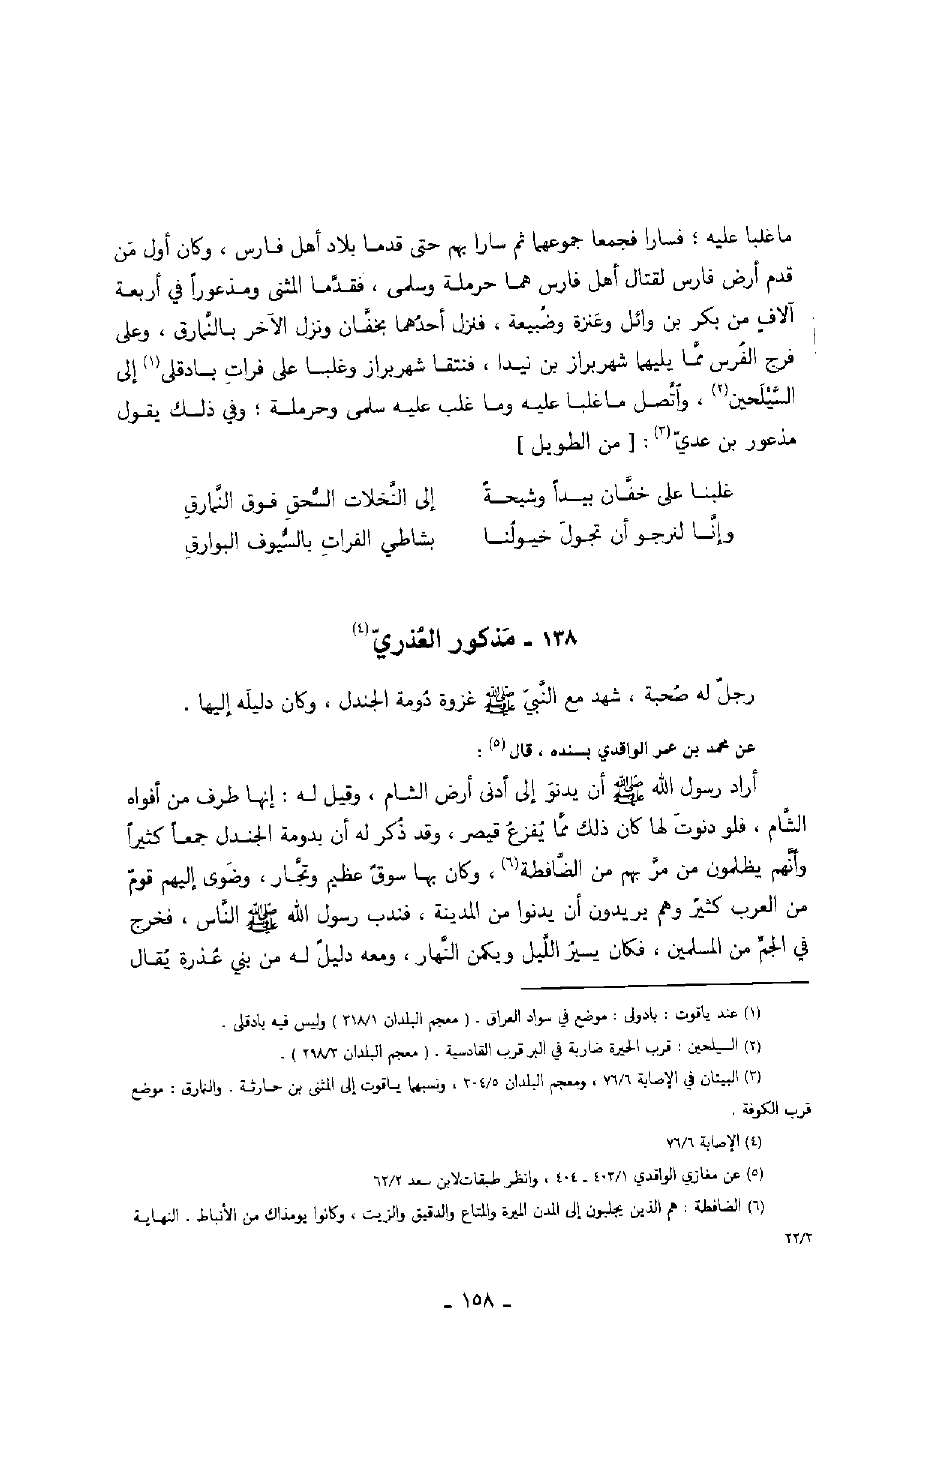 ماغلبا عليه ؛ فسارا فجمعا جموعها ثم سارا بهم حتى قدمـا بلاد أهل فـارس ، وكان أول مَن
قدم أرض فارس لقتال أهل فارس همـا حرملـة وسلمى ، فقـدَّمـا المثنى ومـذعوراً في أربعـة
آلافٍ من بكر بن وائل وعَنزة وضُبيعة ، فنزل أحدُهما بخفَّـان ونزل الآخر بـالنَّارق ، وعلى
فرج الفُرس ممَّا يليها شهربراز بن نيـدا ، فنتقـا شهربراز وغلبـا على فراتِ بـادقلى(١) إلى
السَّيْلَحين(٢) ، واَتُّصـل مـاغلبـا عليـه ومـا غلب عليـه سلمى وحرملـة ؛ وفي ذلـك يقـول
مذعور بن عديّ(٣) : [ من الطويل ]
غلبنـا على خفَّـان بيـداً وشيحـةً إلى النَّخلات السُّحقِ فـوق النَّمارقِ
وإنَّـا لنرجـو أن تجولَ خيـولُنـا بشاطي الفراتِ بالسُّيوف البوارقِ
١٣٨ ـ مَذكور العُذريّ(٤)
رجلٌ له صُحبة ، شهد مع النَّبيّ ﷺ غزوة دُومة الجندل ، وكان دليلَه إليها .
عن محمد بن عمر الواقدي بسنده ، قال(٥) :
أراد رسول الله ﷺ أن يدنوَ إلى أدنى أرض الشـام ، وقيل لـه : إنهـا طرف من أفواه
الشَّام ، فلو دنوتَ لها كان ذلك ممَّا يُفزعُ قيصر ، وقد ذُكر له أن بدومة الجندل جمعـاً كثيراً
وأنَّهم يظلمون من مرَّ بهم من الضَّافطة(٦) ، وكان بها سوقٌ عظيم وتجَّار ، وضَوى إليهم قومٌ
من العرب كثيرٌ وهم يريدون أن يدنوا من المدينة ، فندب رسول الله ﷺ النَّاس ، فخرج
في الجمِّ من المسلمين ، فكان يسيرُ اللَّيل ويكمن النَّهار ، ومعه دليلٌ لـه من بني عُـذرة يُقـال
(١) عند ياقوت : بادولى : موضع في سواد العراق . ( معجم البلدان ٣١٨/١ ) وليس فيه بادقلى .
(٢) السيلحين : قرب الحيرة ضاربة في البر قرب القادسية . ( معجم البلدان ٢٩٨/٣ ) .
(٣) البيتان في الإصابة ٧٦/٦ ، ومعجم البلدان ٣٠٤/٥ ، ونسبها يـاقوت إلى المثنى بن حـارثـة . والنارق : موضع
قرب الكوفة .
(٤) الإصابة ٧٦/٦
(٥) عن مغازي الواقدي ٤٠٣/١ ـ ٤٠٤ ، وانظر طبقات لابن سعد ٦٢/٢
(٦) الضافطة : هم الذين يجلبون إلى المدن الميرة والمتاع والدقيق والزيت ، وكانوا يومذاك من الأنباط . النهـايـة
٢٢/٣
ـ ١٥٨ ـ